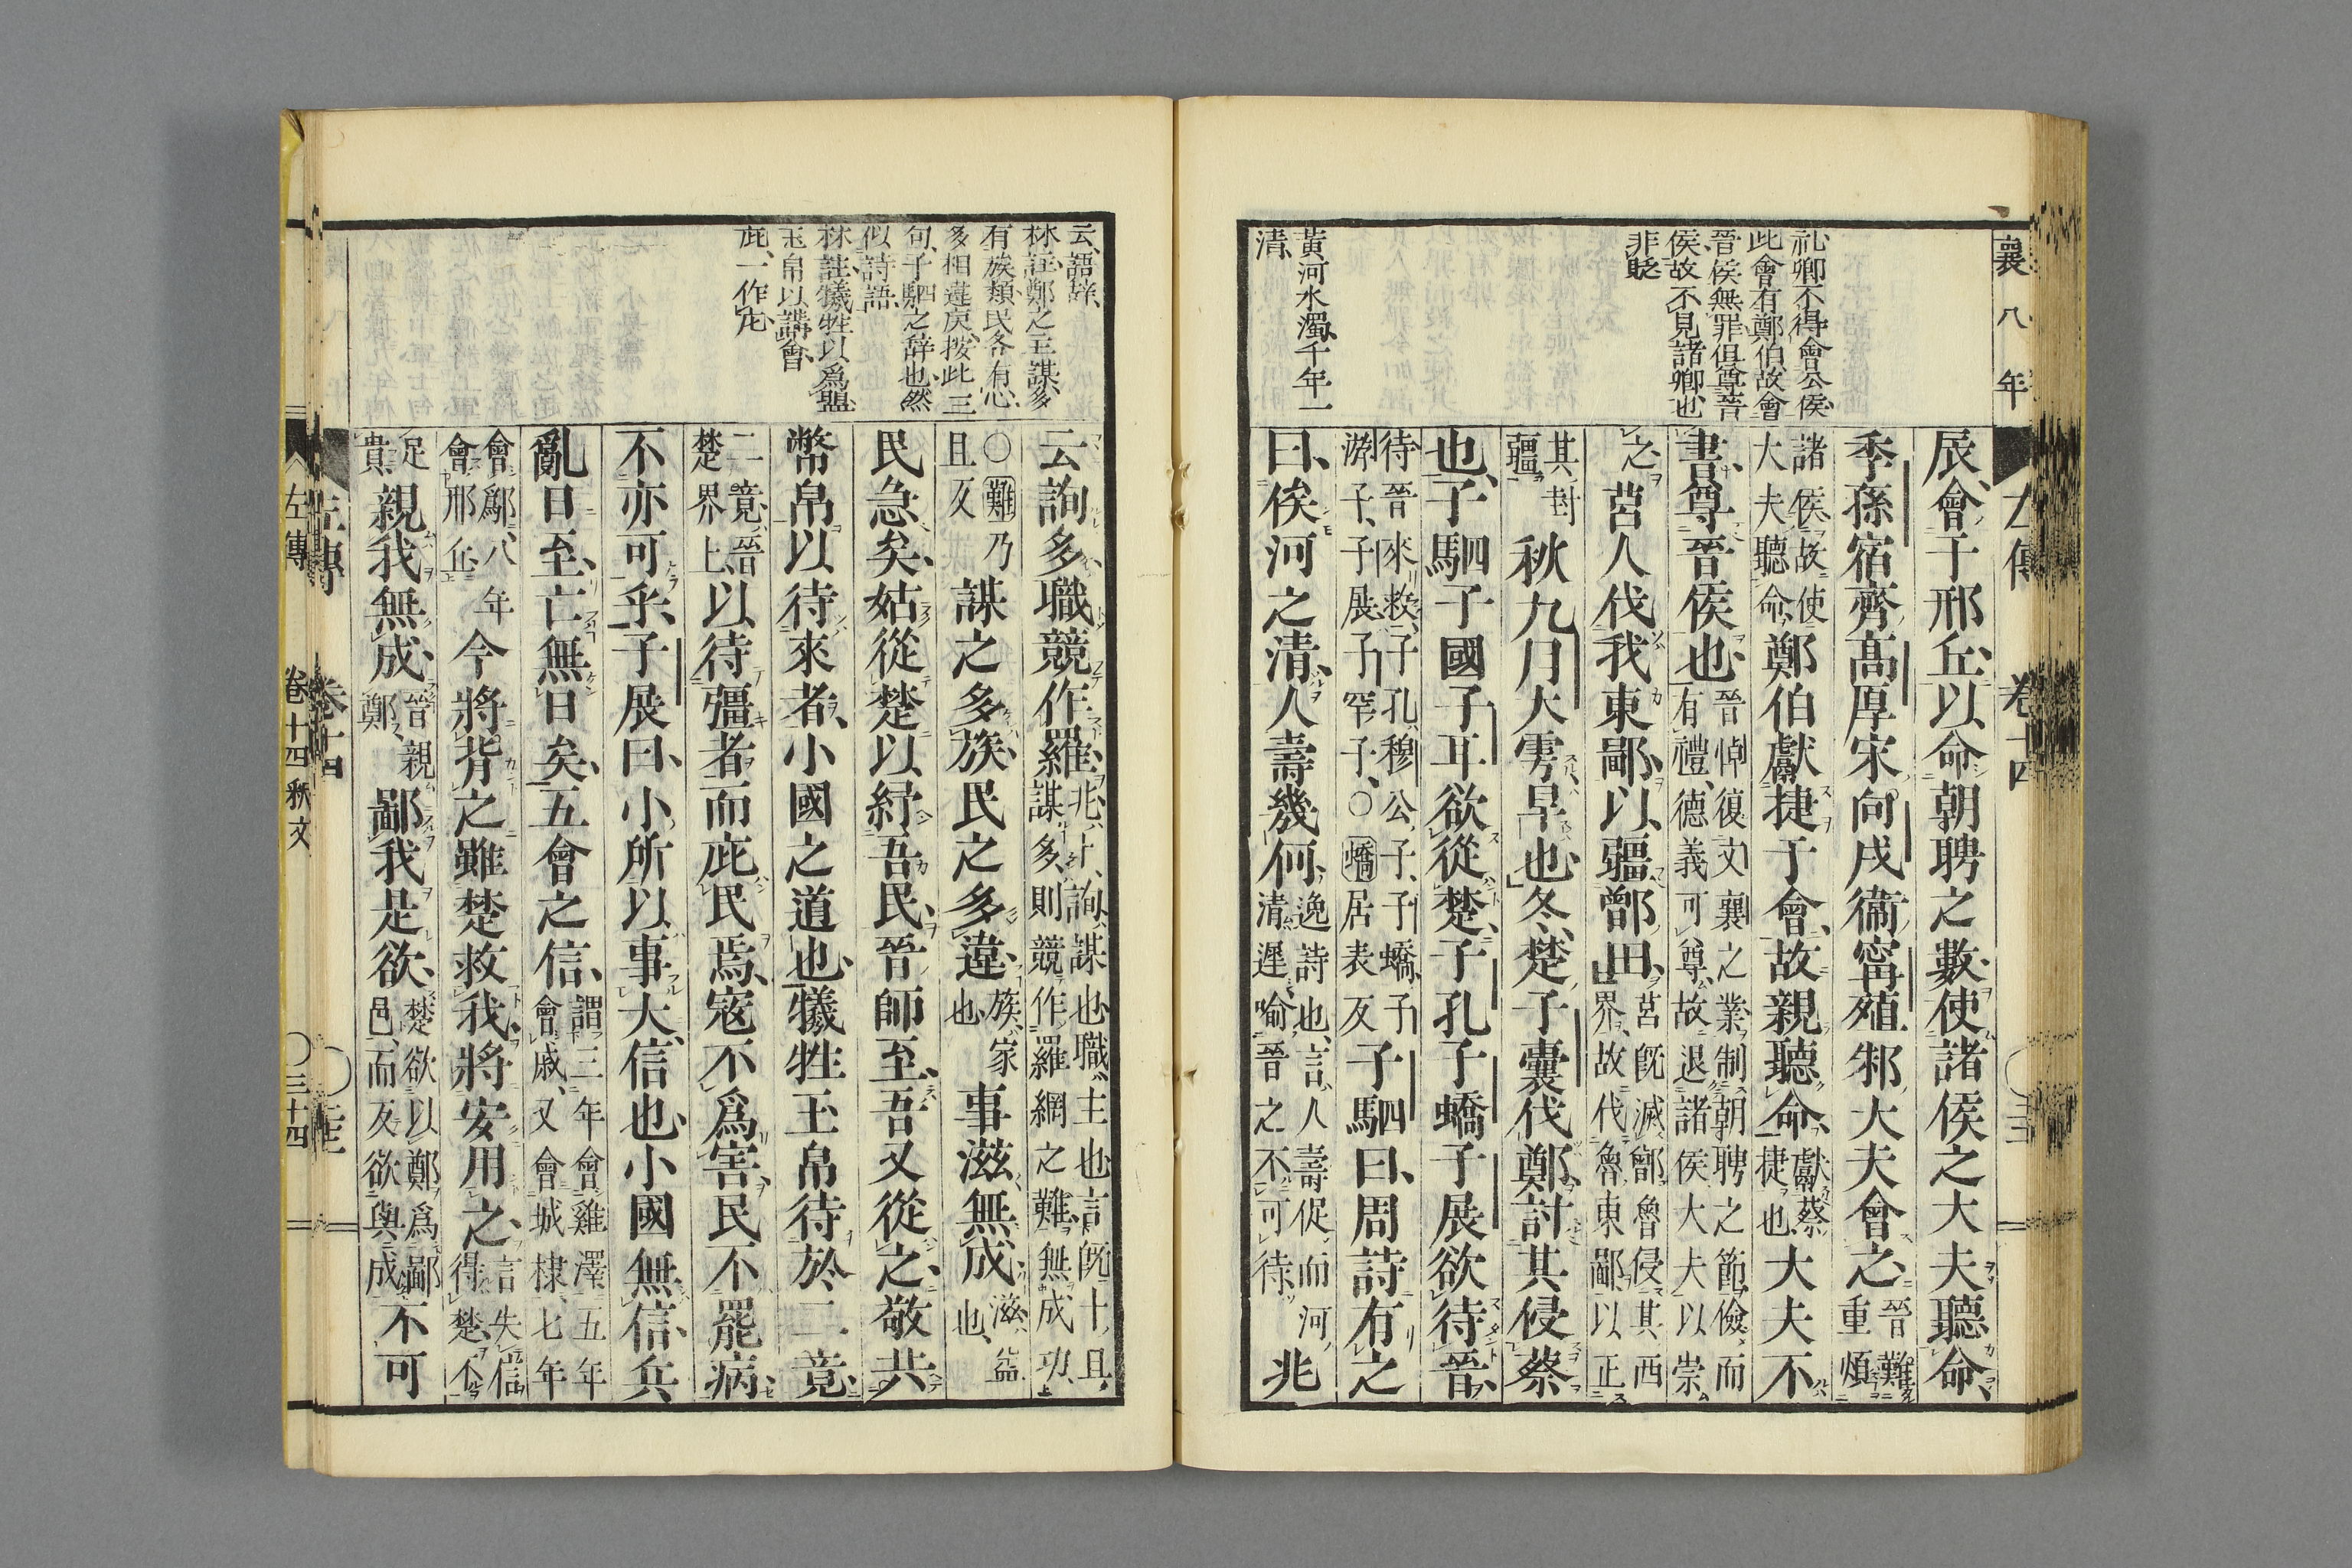 襄八年
左傳　卷十四
礼卿不得會公侯
此會有鄭伯故會
晉侯無罪但尊晉
侯故不見諸卿也
非貶
黃河水濁千年一
清
辰會于邢丘以命朝聘之數使諸侯之大夫聽命
季孫宿齊高厚宋向戌衞甯殖邾大夫會之晉難
重煩
諸侯故使
大夫聽命鄭伯獻捷于會故親聽命獻蔡
捷也大夫不
書尊晉侯也晉悼復文襄之業制朝聘之節儉而
有禮德義可尊故退諸侯大夫以崇
之莒人伐我東鄙以疆鄫田莒旣滅鄫魯侵其西
界故伐魯東鄙以正
其封
疆秋九月大雩旱也冬楚子囊伐鄭討其侵蔡
也子駟子國子耳欲從楚子孔子蟜子展欲待晉
待晉來救子孔穆公子子蟜子
游子子展子罕子○蟜居表反子駟曰周詩有之
曰俟河之清人壽幾何逸詩也言人壽促而河
清遲喻晉之不可待兆
云語辞
林註鄭之主謀多
有族類民各有心
多相違戾按此三
句子駟之辞也然
似詩語
林註犧牲以爲盟
玉帛以講會
庇一作庀
云詢多職競作羅兆卜詢謀也職主也言旣卜且
謀多則競作羅網之難無成功
○難乃
且反謀之多族民之多違族家
也事滋無成滋益
也
民急矣姑從楚以紓吾民晉師至吾又從之敬共
幣帛以待來者小國之道也犧牲玉帛待於二竟
二竟晉
楚界上以待彊者而庇民焉寇不爲害民不罷病
不亦可乎子展曰小所以事大信也小國無信兵
亂日至亡無日矣五會之信謂三年會雞澤五年
會戚又會城棣七年
會鄬八年
會邢丘今將背之雖楚救我將安用之言失信
得楚不
足
貴親我無成晉親
鄭鄙我是欲楚欲以鄭爲鄙
邑而反欲與成不可
左傳　卷十四　秋文　○三十四